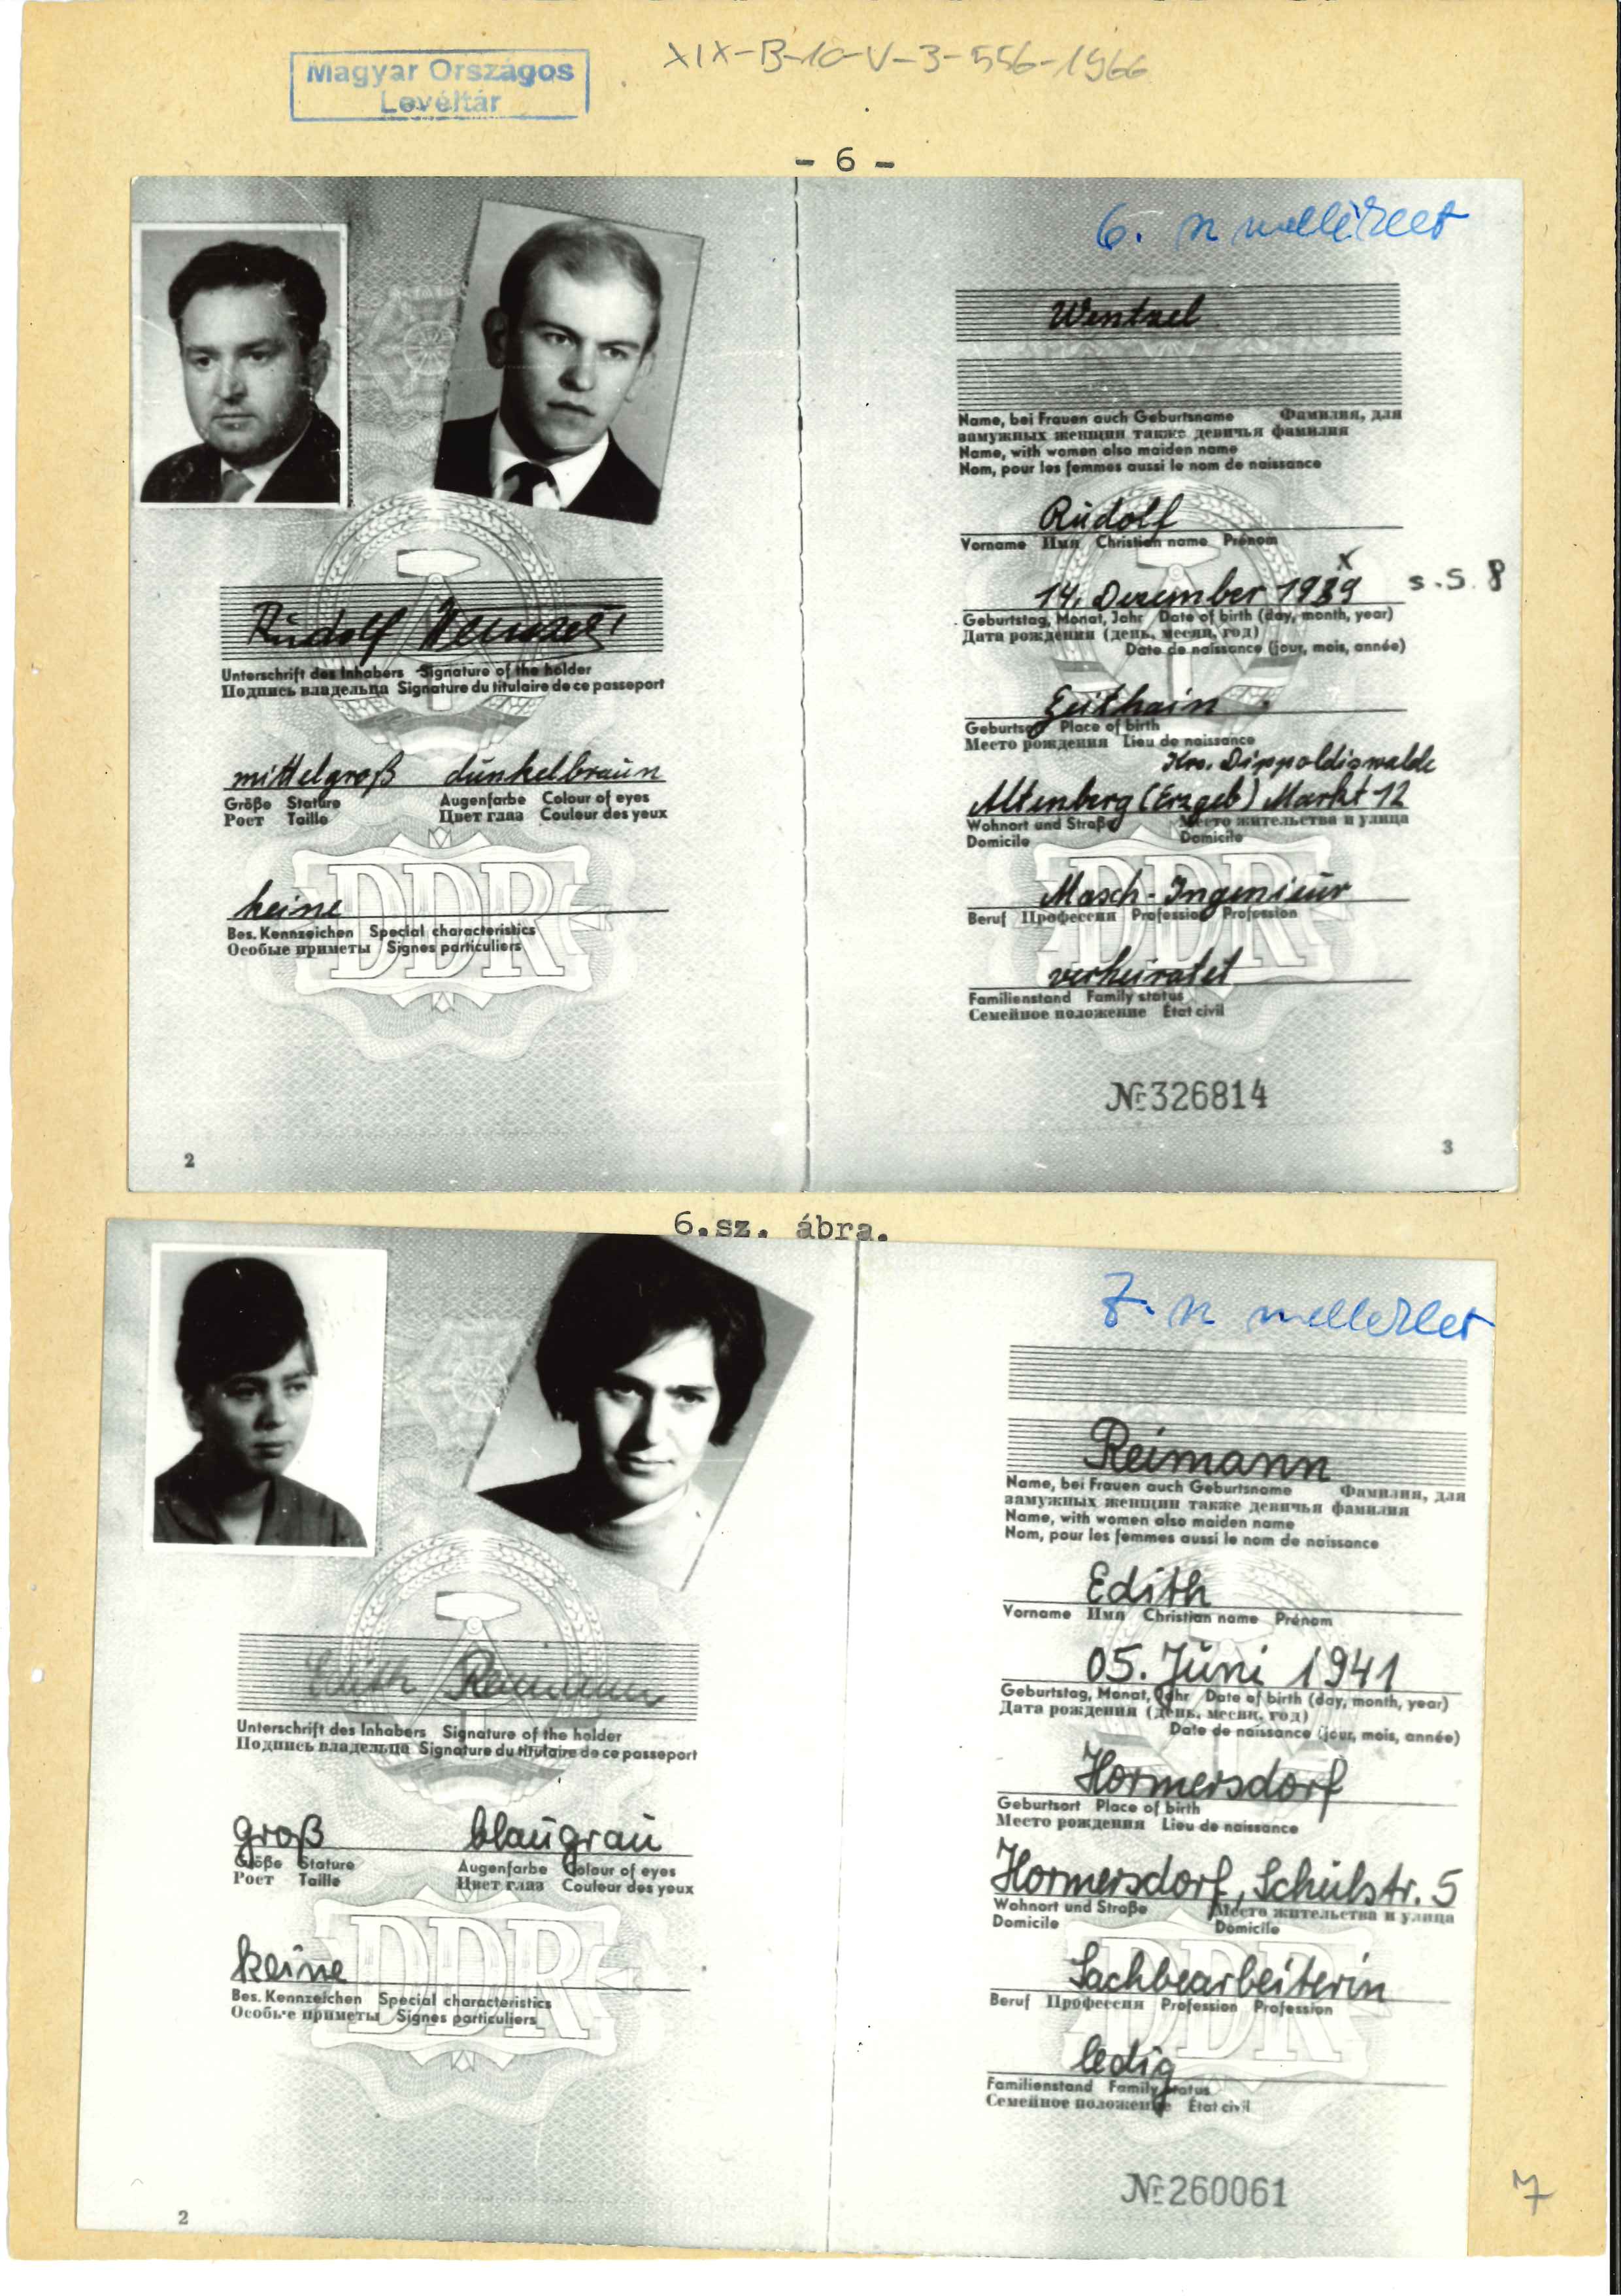 XIX-B-10-V-3-556-1966
Magyar Országos
Levéltár
- 6 -
6. sz melléklet
Wentzel
Name, bei Frauen auch Geburtsname Фамилия, для
замужных женщин также девичья фамилия
Name, with women also maiden name
Nom, pour les femmes aussi le nom de naissance
Rudolf
Vorname Имя Christian name Prénom
x
14. Dezember 1939 s.S. 8
Geburtstag, Monat, Jahr Date of birth (day, month, year)
Дата рождения (день, месяц, год)
Date de naissance (jour, mois, année)
Geithain
Geburtsort Place of birth
Место рождения Lieu de naissance
Krs. Dippoldiswalde
Altenberg (Erzgeb) Markt 12
Wohnort und Straße Место жительства и улица
Domicile Domicile
Masch-Ingenieur
Beruf Профессия Profession Profession
verheiratet
Familienstand Family status
Семейное положение État civil
№ 326814
3
Rudolf
Unterschrift des Inhabers Signature of the holder
Подпись владельца Signature du titulaire de ce passeport
mittelgroß dunkelbraun
Größe Stature Augenfarbe Colour of eyes
Рост Taille Цвет глаз Couleur des yeux
keine
Bes. Kennzeichen Special characteristics
Особые приметы Signes particuliers
DDR
DDR
2
6.sz. ábra.
7. sz melléklet
Reimann
Name, bei Frauen auch Geburtsname Фамилия, для
замужных женщин также девичья фамилия
Name, with women also maiden name
Nom, pour les femmes aussi le nom de naissance
Edith
Vorname Имя Christian name Prénom
05. Juni 1941
Geburtstag, Monat, Jahr Date of birth (day, month, year)
Дата рождения (день, месяц, год)
Date de naissance (jour, mois, année)
Hormersdorf
Geburtsort Place of birth
Место рождения Lieu de naissance
Hormersdorf, Schulstr. 5
Wohnort und Straße Место жительства и улица
Domicile Domicile
Sachbearbeiterin
Beruf Профессия Profession Profession
ledig
Familienstand Family status
Семейное положение État civil
№ 260061
Edith Reimann
Unterschrift des Inhabers Signature of the holder
Подпись владельца Signature du titulaire de ce passeport
groß blaugrau
Größe Stature Augenfarbe Colour of eyes
Рост Taille Цвет глаз Couleur des yeux
keine
Bes. Kennzeichen Special characteristics
Особые приметы Signes particuliers
DDR
DDR
2
7